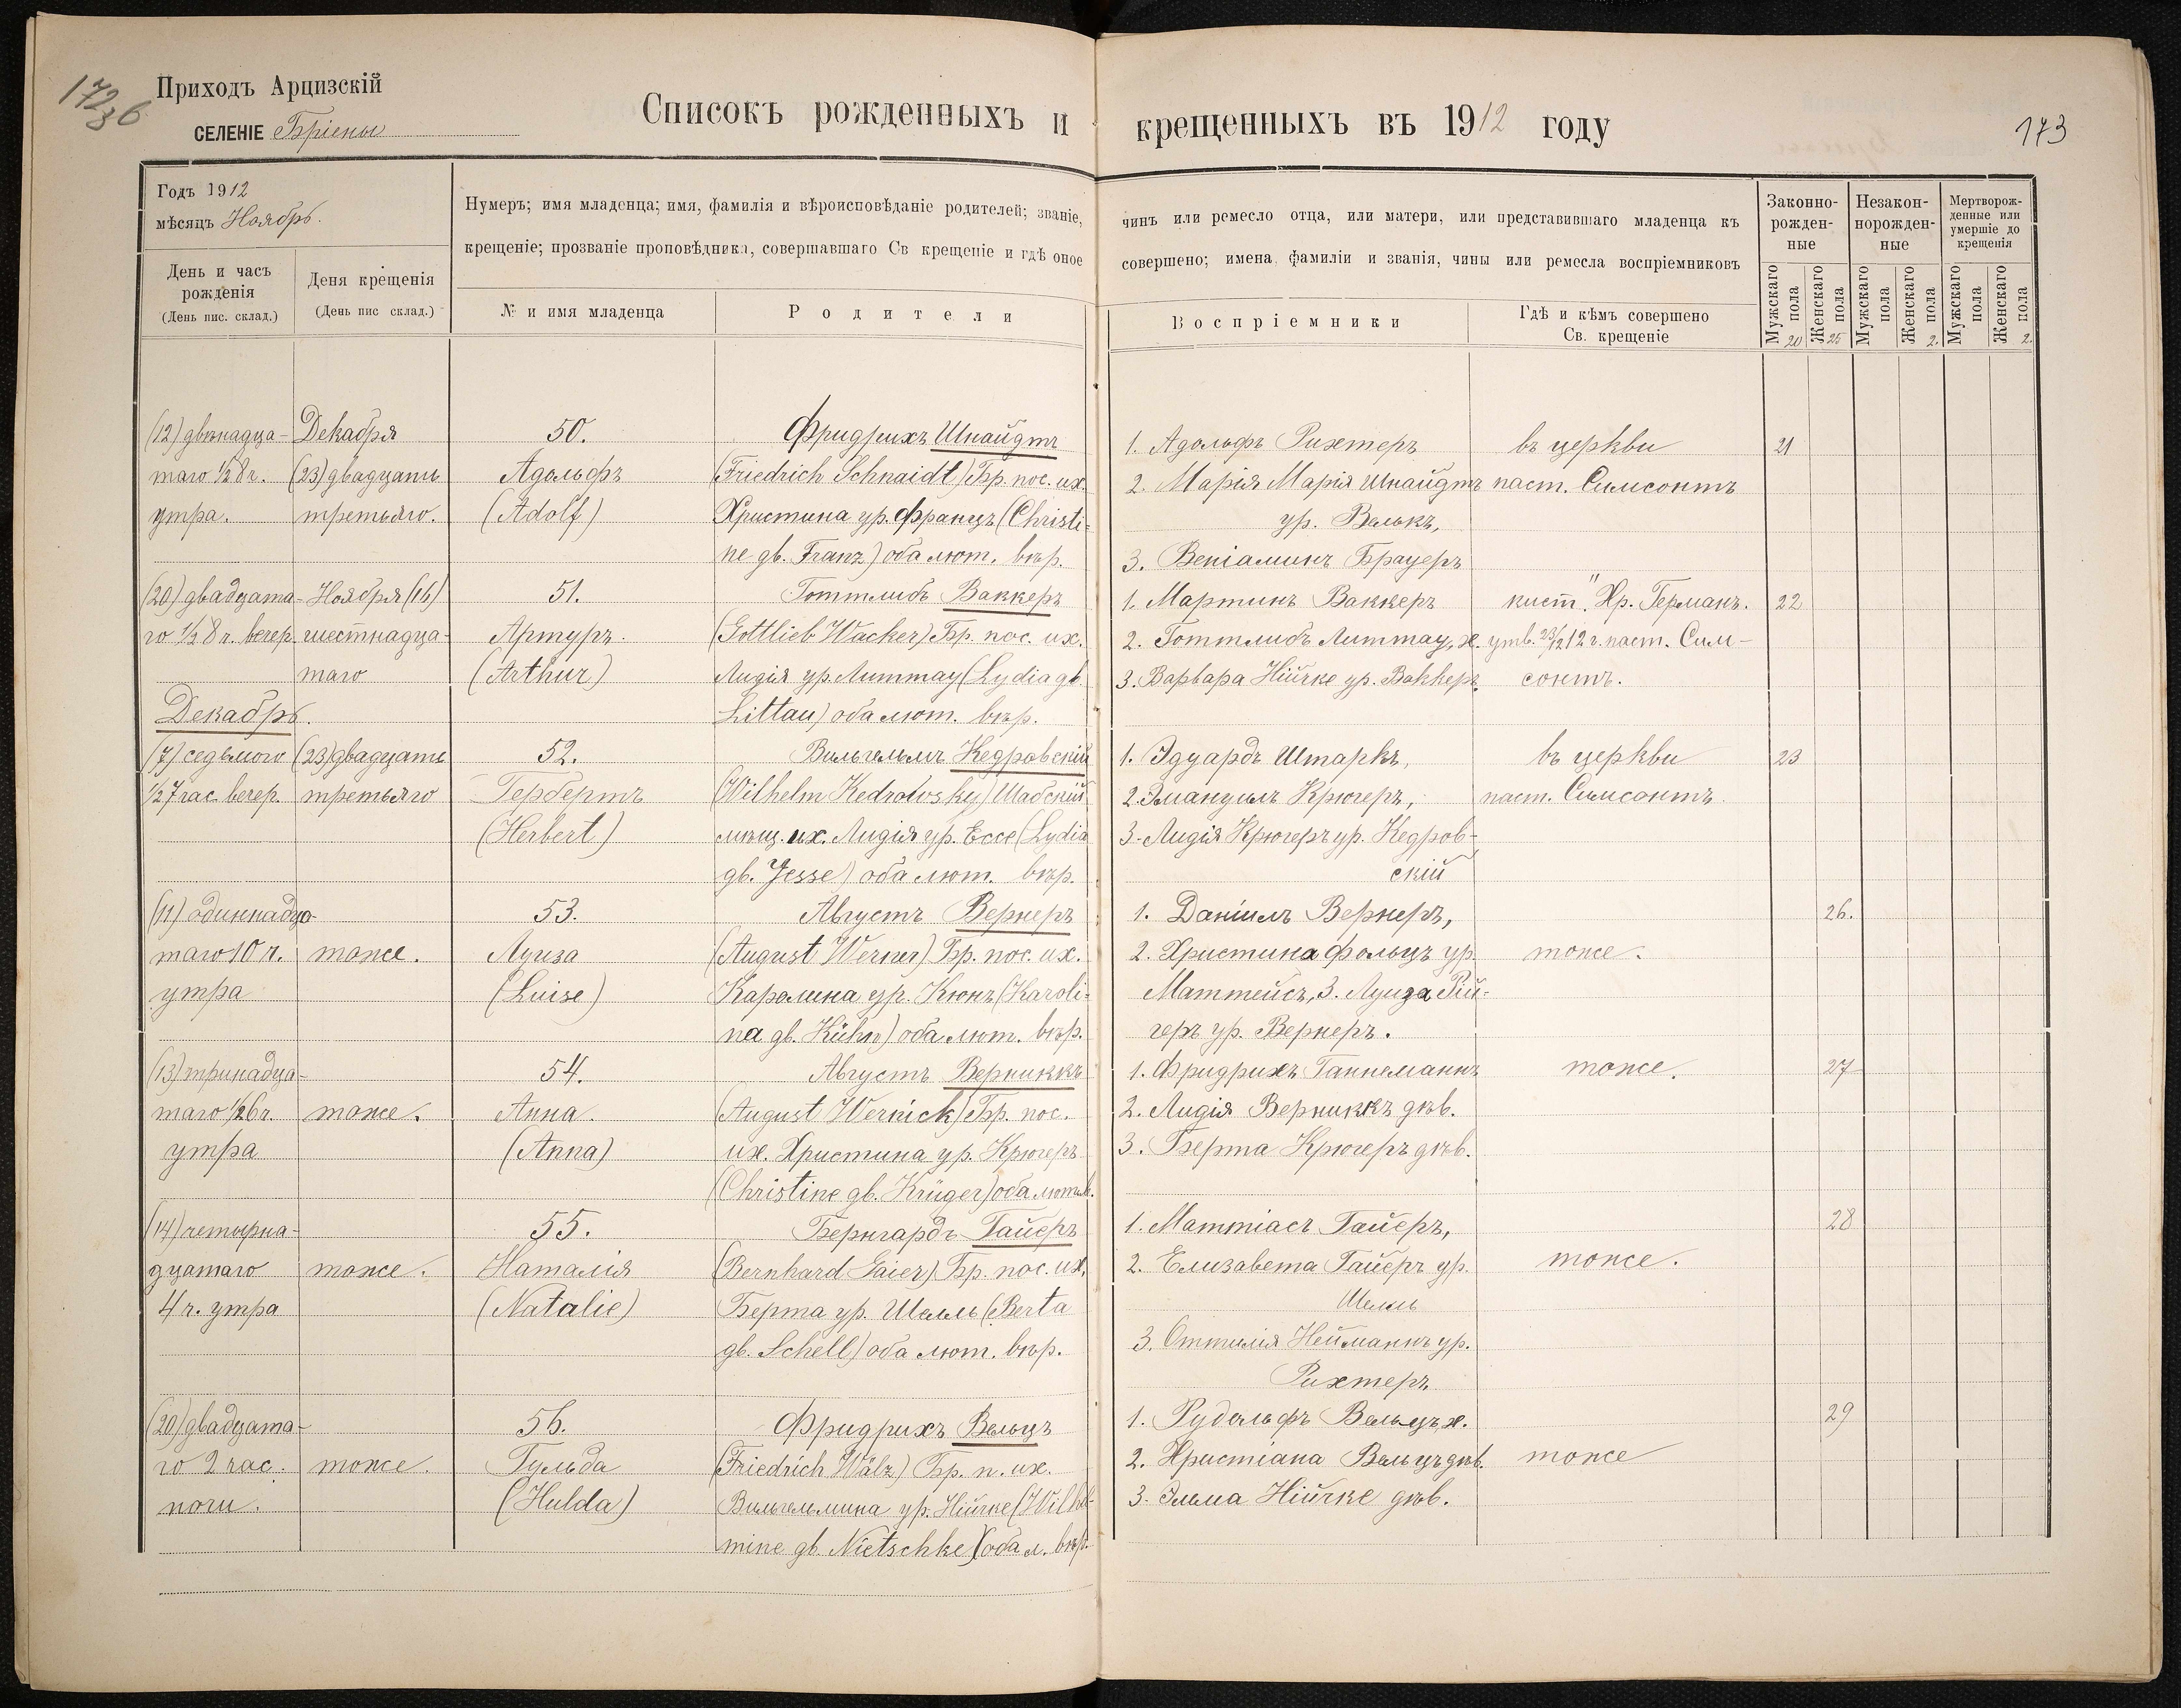 172 об
Приходъ Арцизскій
СЕЛЕНІЕ Бріены
Списокъ рожденныхъ и крещенныхъ въ 1912 году
173
Годъ 1912
мѣсяцъ Ноябрь.
День и часъ рожденія
(День пис. склад.)
Деня крещенія
(День пис склад.)
Нумеръ; имя младенца; имя, фамилія и вѣроисповѣданіе родителей; званіе, чинъ или ремесло отца, или матери, или представившаго младенца къ
крещеніе; прозваніе проповѣдника, совершавшаго Св крещеніе и гдѣ оное совершено; имена, фамиліи и званія, чины или ремесла воспріемниковъ
№ и имя младенца
Родители
Воспріемники
Гдѣ и кѣмъ совершено
Св. крещеніе
Законно-
рожден-
ные
Незакон-
норожден-
ные
Мертворож-
денные или
умершіе до
крещенія
Мужскаго пола 20
Женскаго пола 25
Мужскаго пола
Женскаго пола 2.
Мужскаго пола
Женскаго пола 2.
(12) двѣнадца-
таго ½ 8 ч.
утра.
Декабря
(23) двадцать
третьяго.
50.
Адольфъ
(Adolf)
Фридрихъ Шнайдтъ
(Friedrich Schnaidt) Бр. пос. их.
Христина ур. Францъ (Christi-
ne gb. Franz) оба лют. вѣр.
1. Адольфъ Рихтеръ
2. Марія Марія Шнайдтъ
ур. Валькъ,
3. Веніаминъ Брауеръ
въ церкви
паст. Симсонтъ
21
(20) двадцата-
го ½ 8 ч. вечер.
Ноября (16)
шестнадца-
таго
51.
Артуръ.
(Arthur)
Готтлибъ Ваккеръ
(Gottlieb Wacker) Бр. пос. их.
Лидія ур. Литтау (Lydia gb.
Littau) оба лют. вѣр.
1. Мартинъ Ваккеръ
2. Готтлибъ Литтау, х.
3. Варвара Ничке ур. Ваккеръ.
кист. Хр. Германъ.
утв. 23/12 12 г. паст. Сим-
сонтъ.
22
Декабрь.
(7) седьмого
½ 7 час вечер.
(23) двадцать
третьяго
52.
Гербертъ
(Herbert)
Вильгельмъ Кедровскій
(Wilhelm Kedrowsky) Шабскій
мѣщ. их. Лидія ур. Ессе (Lydia
gb. Jesse) оба лют. вѣр.
1. Эдуардъ Штаркъ,
2. Эмануилъ Крюгеръ,
3. Лидія Крюгеръ ур. Кедров-
скій
въ церкви
паст. Симсонтъ.
23
(11) одиннадца-
таго 10 ч.
утра
тоже.
53.
Луиза
(Luise)
Августъ Вернеръ
(August Werner) Бр. пос. их.
Каролина ур. Кюнъ (Karoli-
na gb. Kühn) оба лют. вѣр.
1. Даніилъ Вернеръ,
2. Христина Фольцъ ур.
Маттейсъ, 3. Луиза Рий-
геръ ур. Вернеръ.
тоже.
26.
(13) тринадца-
таго ½ 6 ч.
утра
тоже.
54.
Анна.
(Anna)
Августъ Верниккъ
(August Wernick) Бр. пос.
их. Христина ур. Крюгеръ
(Christine gb. Krüger) оба лют. в.
1. Фридрихъ Ганнеманнъ
2. Лидія Верниккъ дѣв.
3. Берта Крюгеръ дѣв.
тоже.
27
(14) четырна-
дцатаго
4 ч. утра
тоже.
55.
Наталія
(Natalie)
Бернгардъ Гайеръ
(Bernhard Gaier) Бр. пос. их.
Берта ур. Шелль (Berta
gb. Schell) оба лют. вѣр.
1. Маттіасъ Гайеръ,
2. Елизавета Гайеръ ур.
Шелль
3. Оттилія Нейманнъ ур.
Рихтеръ
тоже.
28
(20) двадцата-
го 2 час.
ночи.
тоже.
56.
Гульда
(Hulda)
Фридрихъ Вельцъ
(Friedrich Wälz) Бр. п. их.
Вильгельмина ур. Ничке (Wilhel-
mine gb. Nietschke) (оба л. вѣр.
1. Рудольфъ Вельцъ, х.
2. Христіана Вельцъ дѣв.
3. Эмма Ничке дѣв.
тоже
29